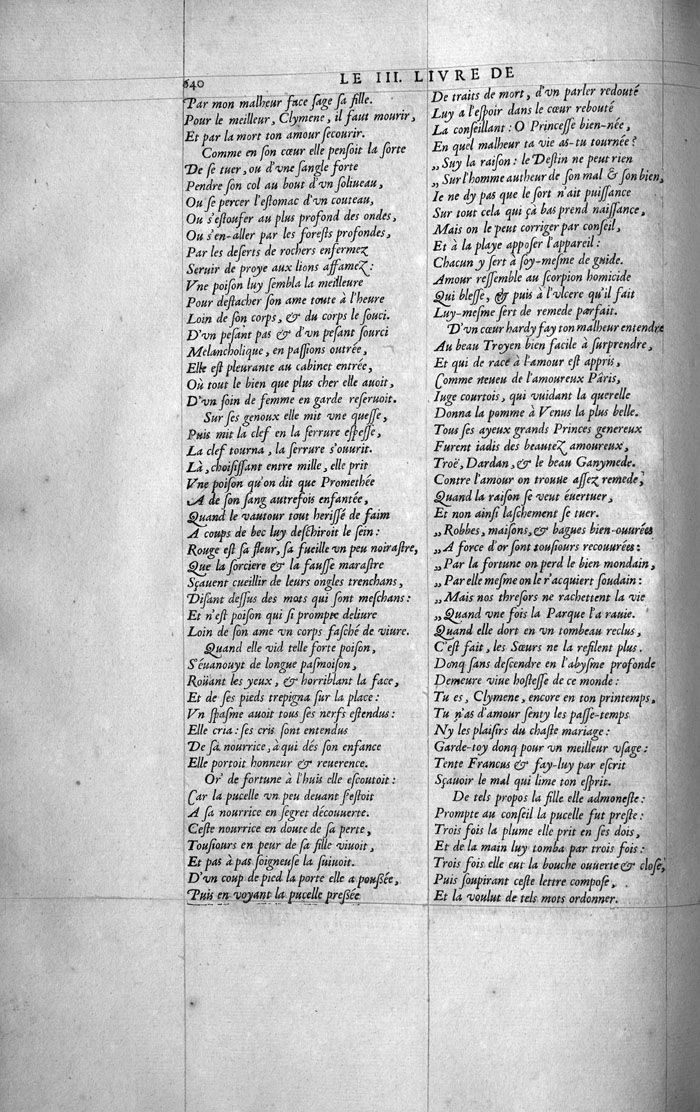 640
LE III. LIVRE DE
Par mon malheur face ſage ſa fille.
Pour le meilleur, Clymene, il faut mourir,
Et par la mort ton amour ſecourir.
Comme en ſon cœur elle penſoit la ſorte
De ſe tuer, ou d'vne ſangle forte
Pendre ſon col au bout d'vn ſoliueau,
Ou ſe percer l'eſtomac d'vn couteau,
Ou s'eſtoufer au plus profond des ondes,
Ou s'en-aller par les foreſts profondes,
Par les deſerts de rochers enfermez
Seruir de proye aux lions affamez:
Vne poiſon luy ſembla la meilleure
Pour deſtacher ſon ame toute à l'heure
Loin de ſon corps, & du corps le ſouci.
D'vn peſant pas & d'vn peſant ſourci
Melancholique, en paſſions outrée,
Elle eſt pleurante au cabinet entrée,
Où tout le bien que plus cher elle auoit,
D'vn ſoin de femme en garde reſeruoit.
Sur ſes genoux elle mit vne queſſe,
Puis mit la clef en la ſerrure eſpeſſe,
La clef tourna, la ſerrure s'ouurit.
Là, choiſiſſant entre mille, elle prit
Vne poiſon qu'on dit que Promethée
A de ſon ſang autrefois enfantée,
Quand le vautour tout heriſſé de faim
A coups de bec luy deſchiroit le ſein:
Rouge eſt ſa fleur, ſa fueille vn peu noiraſtre,
Que la ſorciere & la fauſſe maraſtre
Sçauent cueillir de leurs ongles trenchans,
Diſant deſſus des mots qui ſont meſchans:
Et n'eſt poiſon qui ſi prompte deliure
Loin de ſon ame vn corps faſché de viure.
Quand elle vid telle forte poiſon,
S'éuanouyt de longue paſmoiſon,
Roüant les yeux, & horriblant la face,
Et de ſes pieds trepigna ſur la place:
Vn ſpaſme auoit tous ſes nerfs eſtendus:
Elle cria: ſes cris ſont entendus
De ſa nourrice, à qui dés ſon enfance
Elle portoit honneur & reuerence.
Or' de fortune à l'huis elle eſcoutoit:
Car la pucelle vn peu deuant s'eſtoit
A ſa nourrice en ſegret découuerte.
Ceſte nourrice en doute de ſa perte,
Touſiours en peur de ſa fille viuoit,
Et pas à pas ſoigneuſe la ſuiuoit.
D'vn coup de pied la porte elle a pouſſée,
Puis en voyant la pucelle preſſée
De traits de mort, d'vn parler redouté
Luy a l'eſpoir dans le cœur rebouté
La conſeillant: O Princeſſe bien-née,
En quel malheur ta vie as-tu tournée?
„Suy la raiſon: le Deſtin ne peut rien
„Sur l'homme autheur de ſon mal & ſon bien,
Ie ne dy pas que le ſort n'ait puiſſance
Sur tout cela qui çà bas prend naiſſance,
Mais on le peut corriger par conſeil,
Et à la playe appoſer l'appareil:
Chacun y ſert à ſoy-meſme de guide.
Amour reſſemble au ſcorpion homicide
Qui bleſſe, & puis à l'vlcere qu'il fait
Luy-meſme ſert de remede parfait.
D'vn cœur hardy fay ton malheur entendre
Au beau Troyen bien facile à ſurprendre,
Et qui de race à l'amour eſt appris,
Comme neueu de l'amoureux Pâris,
Iuge courtois, qui vuidant la querelle
Donna la pomme à Venus la plus belle.
Tous ſes ayeux grands Princes genereux
Furent iadis des beautez amoureux,
Troë, Dardan, & le beau Ganymede.
Contre l'amour on trouue aſſez remede,
Quand la raiſon ſe veut éuertuer,
Et non ainſi laſchement ſe tuer.
„Robbes, maiſons, & bagues bien-ouurées
„A force d'or ſont touſiours recouurées:
„Par la fortune on perd le bien mondain,
„Par elle meſme on le r'acquiert ſoudain:
„Mais nos threſors ne rachettent la vie
„Quand vne fois la Parque l'a rauie.
Quand elle dort en vn tombeau reclus,
C'eſt fait, les Sœurs ne la refilent plus.
Donq ſans deſcendre en l'abyſme profonde
Demeure viue hoſteſſe de ce monde:
Tu es, Clymene, encore en ton printemps,
Tu n'as d'amour ſenty les paſſe-temps
Ny les plaiſirs du chaſte mariage:
Garde-toy donq pour vn meilleur vſage:
Tente Francus & fay-luy par eſcrit
Sçauoir le mal qui lime ton eſprit.
De tels propos la fille elle admoneſte:
Prompte au conſeil la pucelle fut preſte:
Trois fois la plume elle prit en ſes dois,
Et de la main luy tomba par trois fois:
Trois fois elle eut la bouche ouuerte & cloſe,
Puis ſoupirant ceſte lettre compoſe,
Et la voulut de tels mots ordonner.